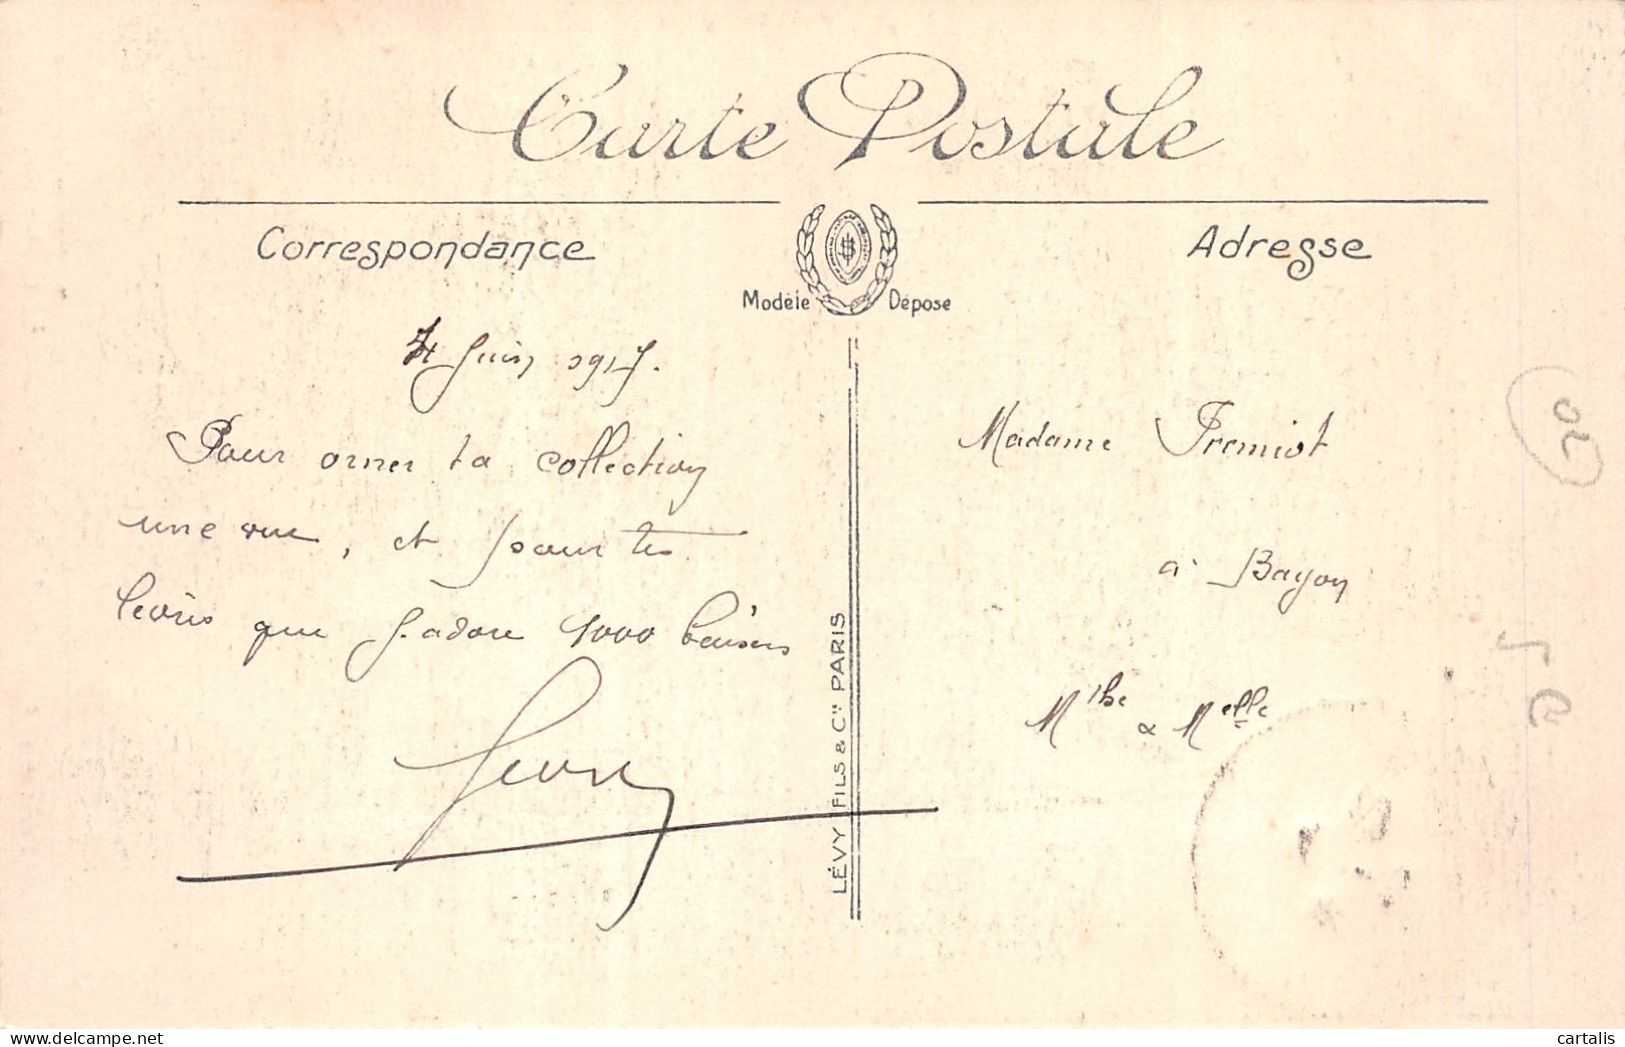 Carte Postale
Correspondance
Adresse
Modèle Déposé
4 Juin 1917.
Pour orner ta collection
une vue, et pour tes
que j'adore 1000 baisers
LÉVY FILS & Cie PARIS
Madame Fremiot
à Bayon
Mthe & Melle
02
cartalis